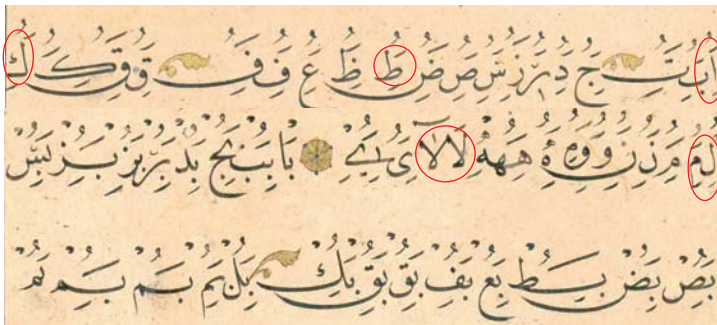 ا ب ت ج د ر ز س ص ض ط ظ ع ف ف ق ق ك ك
ل م م ر ن ن و و ه ه ه لا لا ى ي با بب بج بد بر بز بز بس
بص بض بسط بع بف بق بق بك بل بم بسم بسم تم